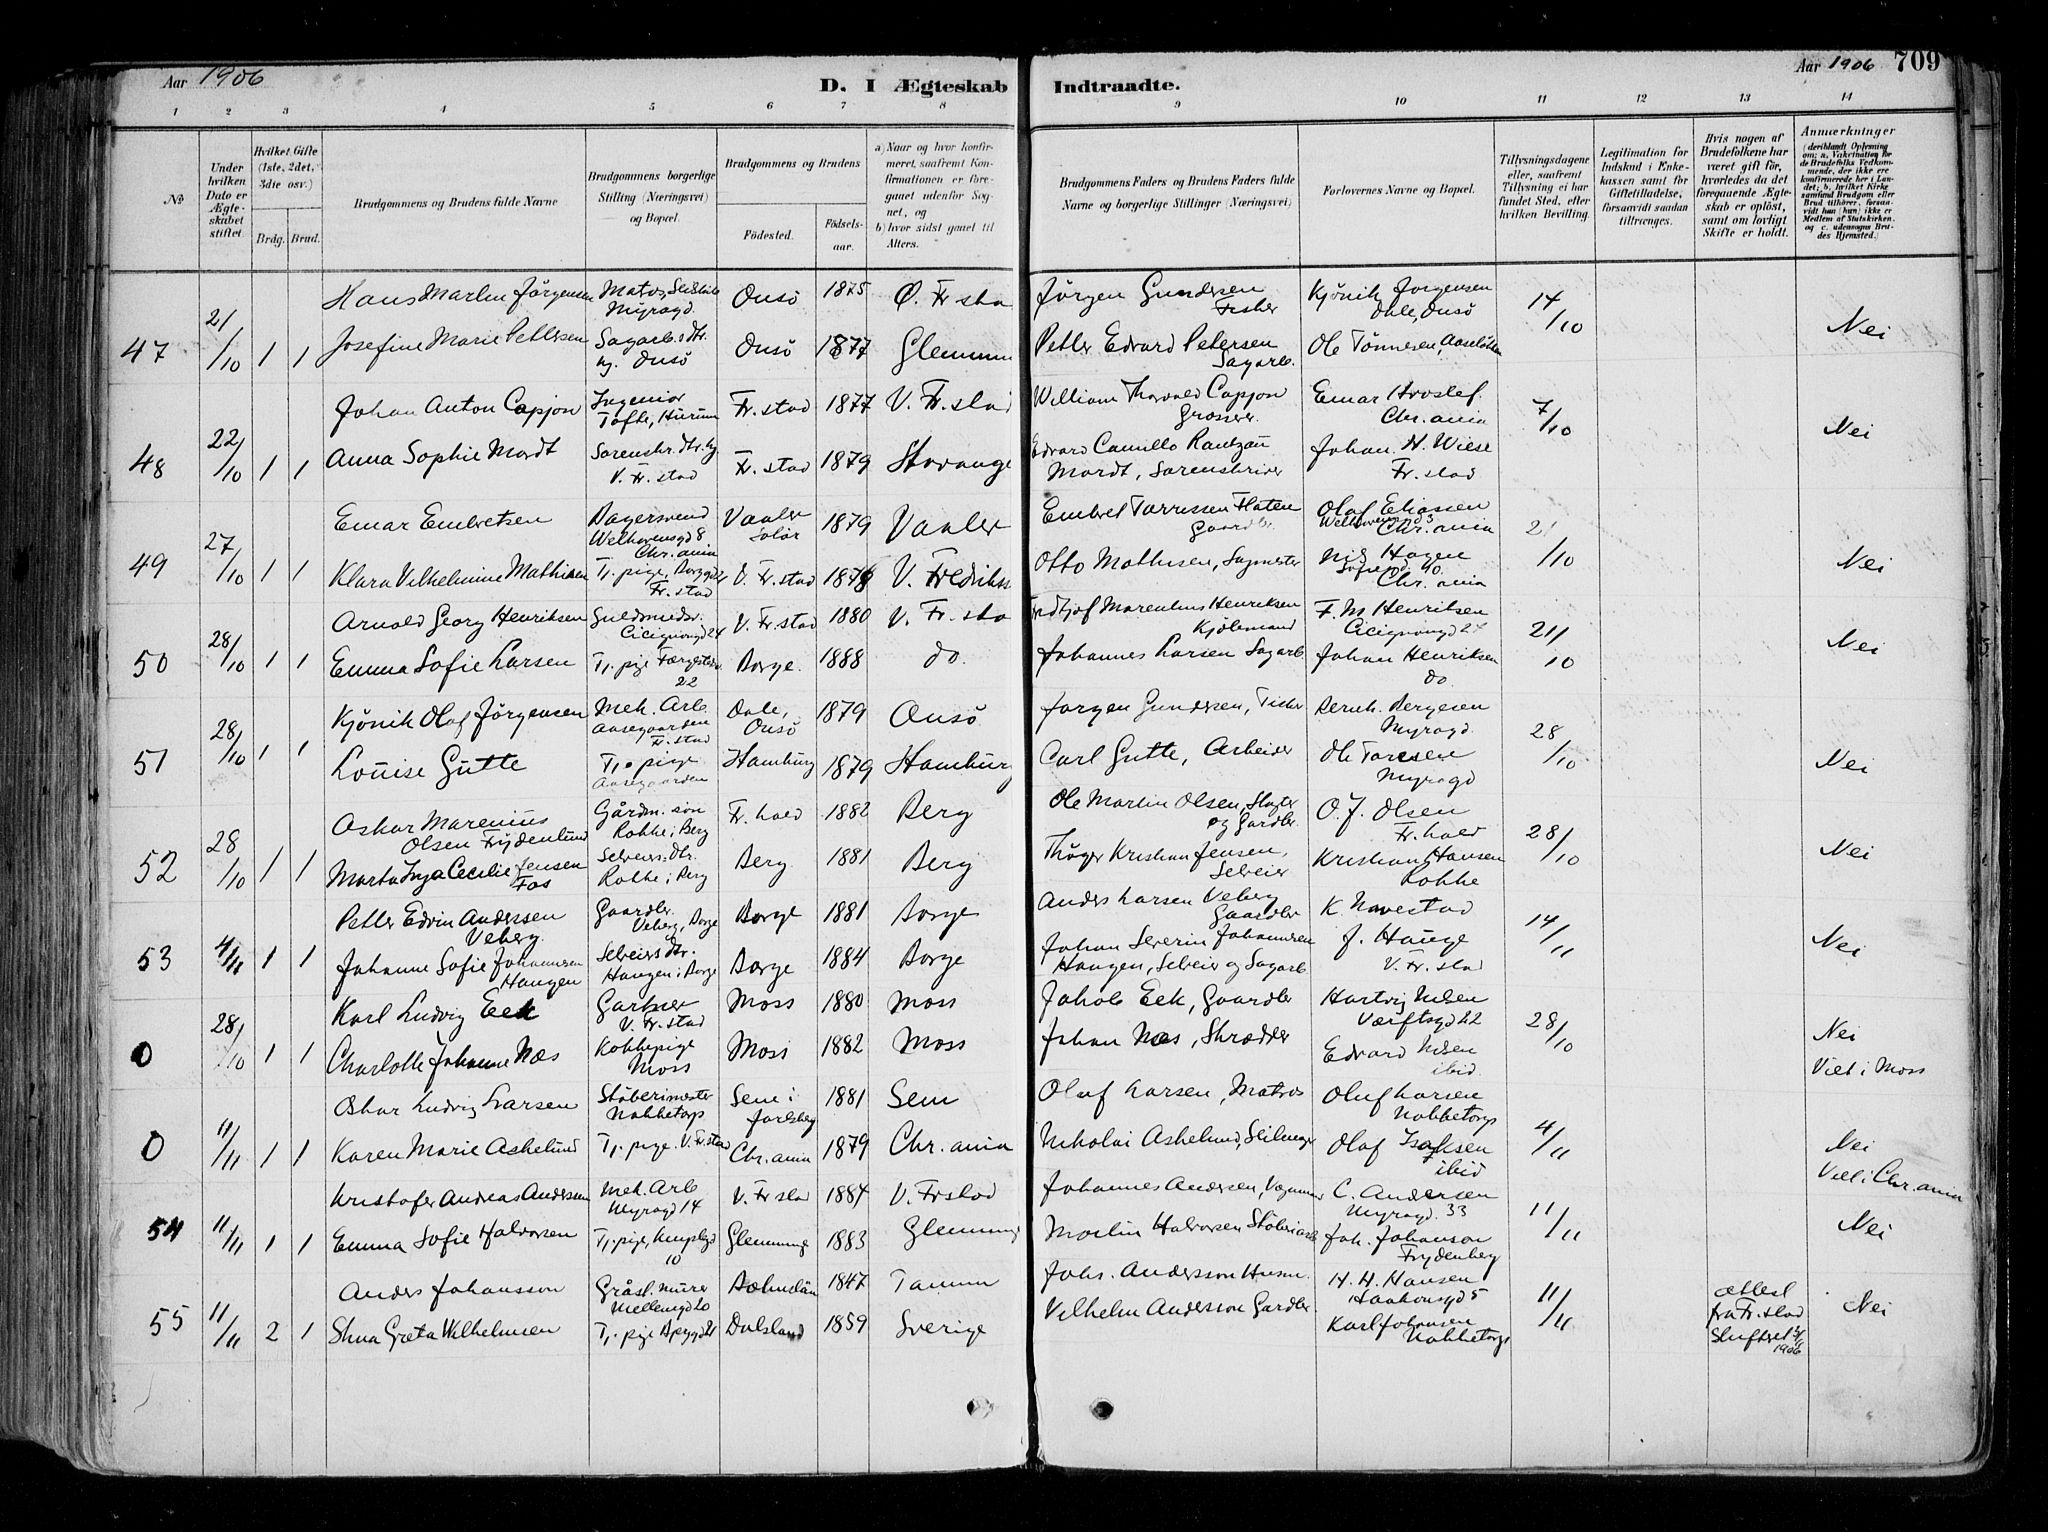 Aar 1906
D. I Ægteskab Indtraadte.
Aar 1906. 709
1 2 3 4 5 6 7 8 9 10 11 12 13 14
No
Under hvilken Dato er Ægteskabet stiftet.
Hvilket Gifte (1ste, 2det, 3die osv.)
Brdg. Brud.
Brudgommens og Brudens fulde Navne
Brudgommens borgerlige Stilling (Næringsvei) og Bopæl.
Brudgommens og Brudens
Fødested. Fødselsaar.
a) Naar og hvor konfirmeret, saafremt Konfirmationen er foregaaet udenfor Sognet, og
b) hvor sidst gaaet til Alters.
Brudgommens Faders og Brudens Faders fulde Navne og borgerlige Stillinger (Næringsvei)
Forlovernes Navne og Bopæl.
Tillysningsdagene eller, saafremt Tillysning ei har fundet Sted, efter hvilken Bevilling.
Legitimation for Indskud i Enkekassen samt for Giftetilladelse, forsaavidt saadan tiltrænges.
Hvis nogen af Brudefolkene har været gift før, hvorledes da det foregaaende Ægteskab er opløst, samt om lovligt Skifte er holdt.
Anmærkninger
(deriblandt Oplysning om; a, Vakcination for de Brudefolks Vedkommende, der ikke ere konfirmerede her i Landet; b, hvilket Kirkesamfund Brudgom eller Brud tilhører, forsaavidt han (hun) ikke er Medlem af Statskirken, og c. udensogns Brudes Hjemsted.)
47 21/10 1 1
Hans Martin Jörgensen Myragd. Onsö 1875 Ø. Fr.sta Jörgen Gundersen Fisker Kjönik Jorgensen Dale, Onsö 14/10 Nei
Josefine Marie Pettersen Sagarb.s dtr. Onsö Onsö 1877 Glemmin Petter Edvard Petersen Sagarb. Ole Tönnesen,
48 22/10 1 1
Johan Anton Capjon Ingeniör Tofte, Hurum Fr. stad 1877 V. Fr. stad William Thorvald Capjon Grosserer Einar Hroslef. Chr.ania 7/10 Nei
Anna Sophie Mordt Sorenskr. dtr. V. Fr. stad Fr. stad 1879 Stavange Edvard Camillo Rantzau Mordt, Sorenskriver Johan. H. Wiese Fr. stad
49 27/10 1 1
Einar Embretsen Welhavensgd 8 Chr. ania Vaaler Solör 1879 Vaaler Embret Flaten Gaardbr. Olaf Eliassen Chr. ania 21/10 Nei
Klara Vilhelmine Mathisen Tj. pige, Fr. stad V. Fr. stad 1878 V. Fredrikss Otto Mathisen, Sagmester Nils Hagen Sofiegd. 40. Chr. ania
50 28/10 1 1
Arnold Georg Henriksen Guldsmedsv. Cicignongd 24 V. Fr. stad 1880 V. Fr. sta Henriksen Kjölemand F. M Henriksen Cicignongd 24 21/10 Nei
Emma Sofie Larsen Tj. pige 22 Borge. 1888 do. Johannes Larsen Sagarb Johan Henriksen do.
51 28/10 1 1
Kjönik Olaf Jörgensen Mek. Arb. Aasegaarden Fr. stad Dale, Onsö 1879 Onsö Jorgen Gundersen, Fisker Bernh. Bergesen Myragd. 28/10 Nei
Louise Gütte Tj. pige Aasegaarden Hamburg 1879 Hamburg Carl Gutte, Arbeider Ole Toresen Myragd
52 28/10 1 1
Oskar Marenius Olsen Frydenlund Gårdm. sön Rokke i Berg Fr. hald 1882 Berg Ole Martin Olsen, Slagter og Gardbr. O. J. Olsen Fr. hald 28/10 Nei
Marta Inga Cecilie Jensen Fos Selveiers dtr. Rokke i Berg Berg 1881 Berg Thöger Kristian Jensen, Selveier Kristian Hansen Rokke
53 4/11 1 1
Petter Edvin Anderssen Veberg. Gaardbr. Veberg, Borge Borge 1881 Borge Anders Larsen Veberg Gaardbr K. Navestad 14/11 Nei
Johanne Sofie Johannesen Haugen Selveiers dtr. Haugen i Borge Borge 1884 Borge Johan Severin Johannesen Haugen, Selveier og Sagarb J. Hauge V. Fr. stad
0 28/10 1 1
Karl Ludvig Eek Gartner V. Fr. stad Moss 1880 Moss Jakob Eek, Gaardbr Hartvig Nilsen Værftsgd 22 28/10 Nei
Charlotte Johanne Næs Kokkepige Moss Moss 1882 Moss Johan Næs, Skrædder Edvard Nilsen ibid. Viet i Moss
0 11/11 1 1
Oskar Ludvig Larsen Stöberimester Nabbetorp Sem i Jarlsberg 1881 Sem Olaf Larsen, Matros Oluf Larsen Nabbetorp 4/11 Nei
Karen Marie Askelund Tj. pige. V. Fr. stad Chr. ania 1879 Chr. ania Nikolai Askelund, Olaf Isaksen ibid Viet i Chr. ania
54 11/11 1 1
Kristofer Andreas Andersen Mek. Arb Myragd 14 V. Fr stad 1884 V. Fr stad Johannes Andersen, C. Andersen Myragd. 33 11/11 Nei
Emma Sofie Halvorsen Tj. pige, 10 Glemminge 1883 Glemminge Martin Halvorsen Stöberiarb Joh. Johanson Frydenberg
55 11/11 2 1
Anders Johansson Gråst. murer Mellemgd 20 Bohuslän 1847 Tanum Johs. Andersson Husm. H. H. Hansen Haakonsgd 5 11/11 Attest fra Fr. stad Skifteret 1906 Nei
Stina Greta Wilhelmsen Tj. pige Dalsland 1859 Sverige Vilhelm Andersson Gardbr. Karl Johansen Nabbetorp